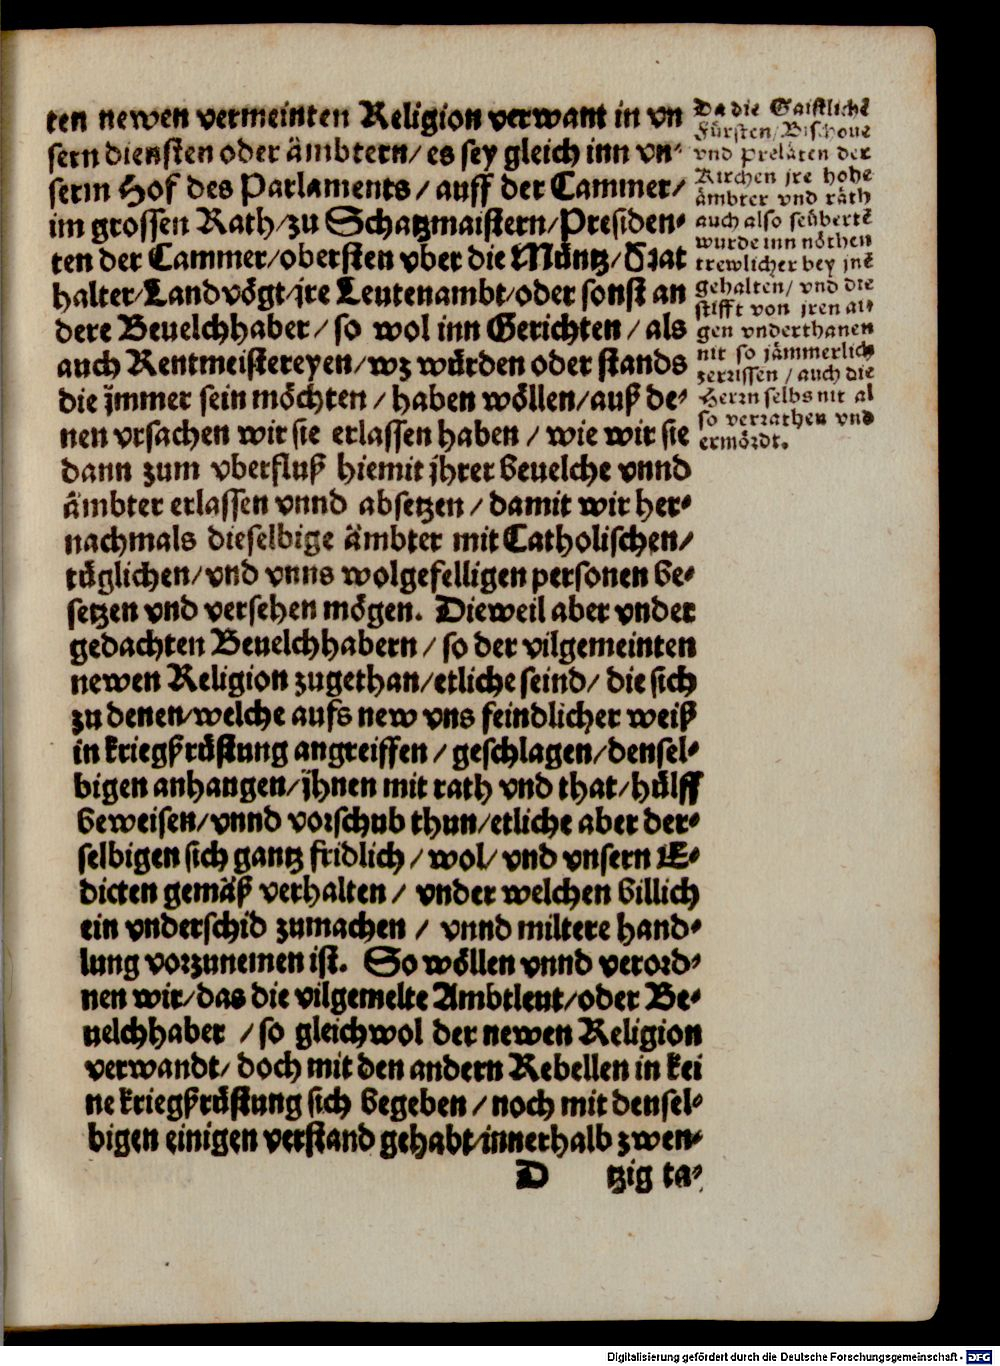 ten newen vermeinten Religion verwant in vn
sern diensten oder ämbtern/ es sey gleich inn vn⸗
serm Hof des Parlaments/ auff der Cammer/
im grossen Rath/ zu Schatzmaistern/ Presiden⸗
ten der Cammer/ obersten vber die Müntz/ Stat
halter/ Landvögt/ jre Leutenambt/ oder sonst an
dere Beuelchhaber/ so wol inn Gerichten/ als
auch Rentmeistereyen/ wz würden oder stands
die jmmer sein möchten/ haben wöllen/ auß de⸗
nen vrsachen wir sie erlassen haben/ wie wir sie
dann zum vberfluß hiemit jhrer beuelche vnnd
ämbter erlassen vnnd absetzen/ damit wir her⸗
nachmals dieselbige ämbter mit Catholischen/
tüglichen/ vnd vnns wolgefelligen personen be⸗
setzen vnd versehen mögen. Dieweil aber vnder
gedachten Beuelchhabern/ so der vilgemeinten
newen Religion zugethan/ etliche seind/ die sich
zu denen/ welche aufs new vns feindlicher weiß
in kriegßrüstung angreiffen/ geschlagen/ densel⸗
bigen anhangen/ jhnen mit rath vnd that/ hülff
beweisen/ vnnd vorschub thun/ etliche aber der⸗
selbigen sich gantz fridlich/ wol/ vnd vnsern E⸗
dicten gemäß verhalten/ vnder welchen billich
ein vnderschid zumachen/ vnnd miltere hand⸗
lung vorzunemen ist. So wöllen vnnd verord⸗
nen wir/ das die vilgemelte Ambtleut/ oder Be⸗
uelchhaber/ so gleichwol der newen Religion
verwandt/ doch mit den andern Rebellen in kei
ne kriegßrüstung sich begeben/ noch mit densel⸗
bigen einigen verstand gehabt/ innerhalb zwen⸗
D tzig ta⸗
Da die Gaistlichē
Fürsten/ Bischoue
vnd Prelaten der
Kirchen jre hohe
ämbter vnd räth
auch also seübertē
wurde inn nöthen
trewlicher bey jnē
gehalten/ vnd die
stifft von jren ai⸗
gen vnderthanen
nit so jämmerlich
zerrissen/ auch die
Herrn selbs nit al
so verrathen vnd
ermördt.
Digitalisierung gefördert durch die Deutsche Forschungsgemeinschaft - DFG